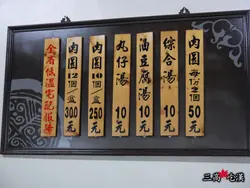 肉圓每份2個50元
綜合湯10元
油豆腐湯10元
丸仔湯10元
肉圓10個/盒250元
肉圓12個/盒300元
全省低溫宅配服務